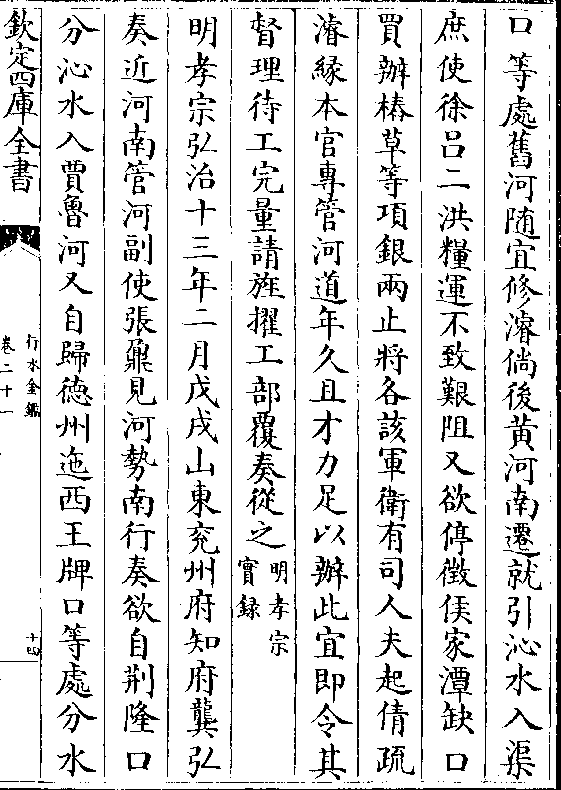 口等處舊河随宜修濬倘後黄河南遷就引沁水入渠
庶使徐吕二洪糧運不致艱阻又欲停徴侯家潭缺口
買辦樁草等項銀兩止將各該軍衛有司人夫起倩疏
濬縁本官專管河道年久且才力足以辦此宜即令其
督理待工完量請旌擢工部覆奏從之明孝宗實録
明孝宗弘治十三年二月戊戌山東兖州府知府龔弘
奏近河南管河副使張鼐見河勢南行奏欲自荆隆口
分沁水入賈魯河又自歸德州迤西王牌口等處分水
欽定四庫全書
行水金鑑
卷二十一
十四